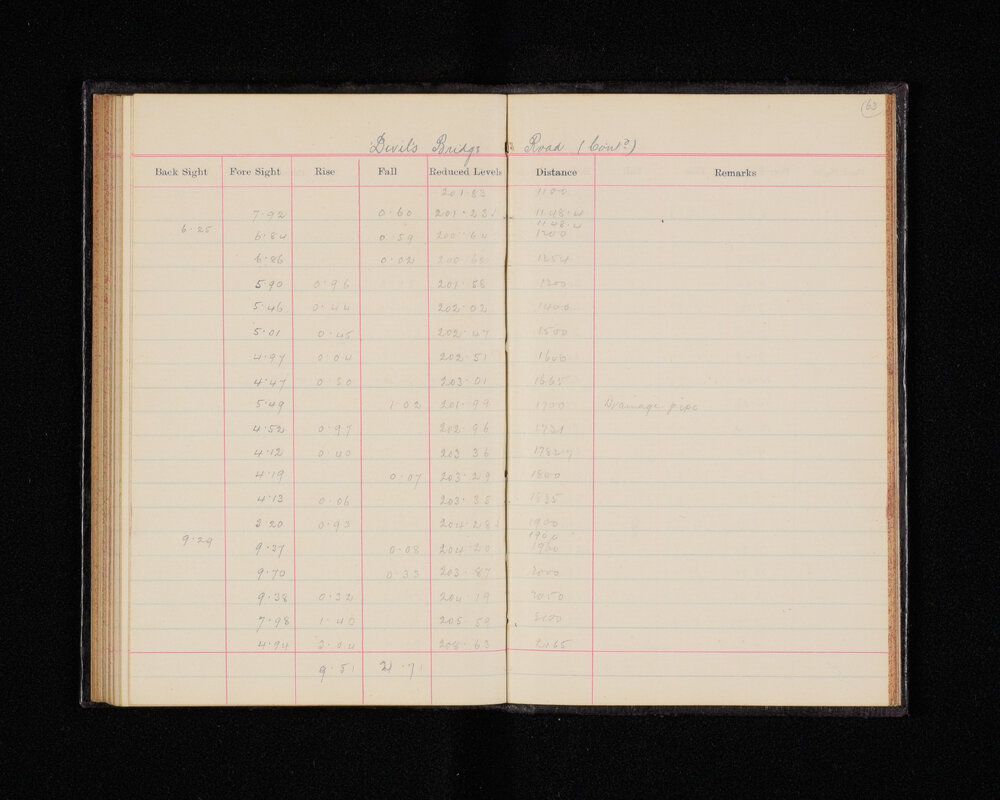 63
Devil's Bridge Road (Con^d)
Back Sight Fore Sight Rise Fall Reduced Levels Distance Remarks
201.83 1100
7.92 0.60 201.23 1148.4
6.25 1148.4
6.84 0.59 200.64 1200
6.86 0.02 200.62 1254
5.90 0.96 201.58 1300
5.46 0.44 202.02 1400
5.01 0.45 202.47 1500
4.97 0.04 202.51 1600
4.47 0.50 203.01 1665
5.49 1.02 201.99 1700 Drainage pipe
4.52 0.97 202.96 1731
4.12 0.40 203.36 1782.7
4.19 0.07 203.29 1800
4.13 0.06 203.35 1835
3.20 0.93 204.28 1900
9.29 1900
9.37 0.08 204.20 1950
9.70 0.33 203.87 2000
9.38 0.32 204.19 2050
7.98 1.40 205.59 2100
4.94 3.04 208.63 2165
9.51 2.71